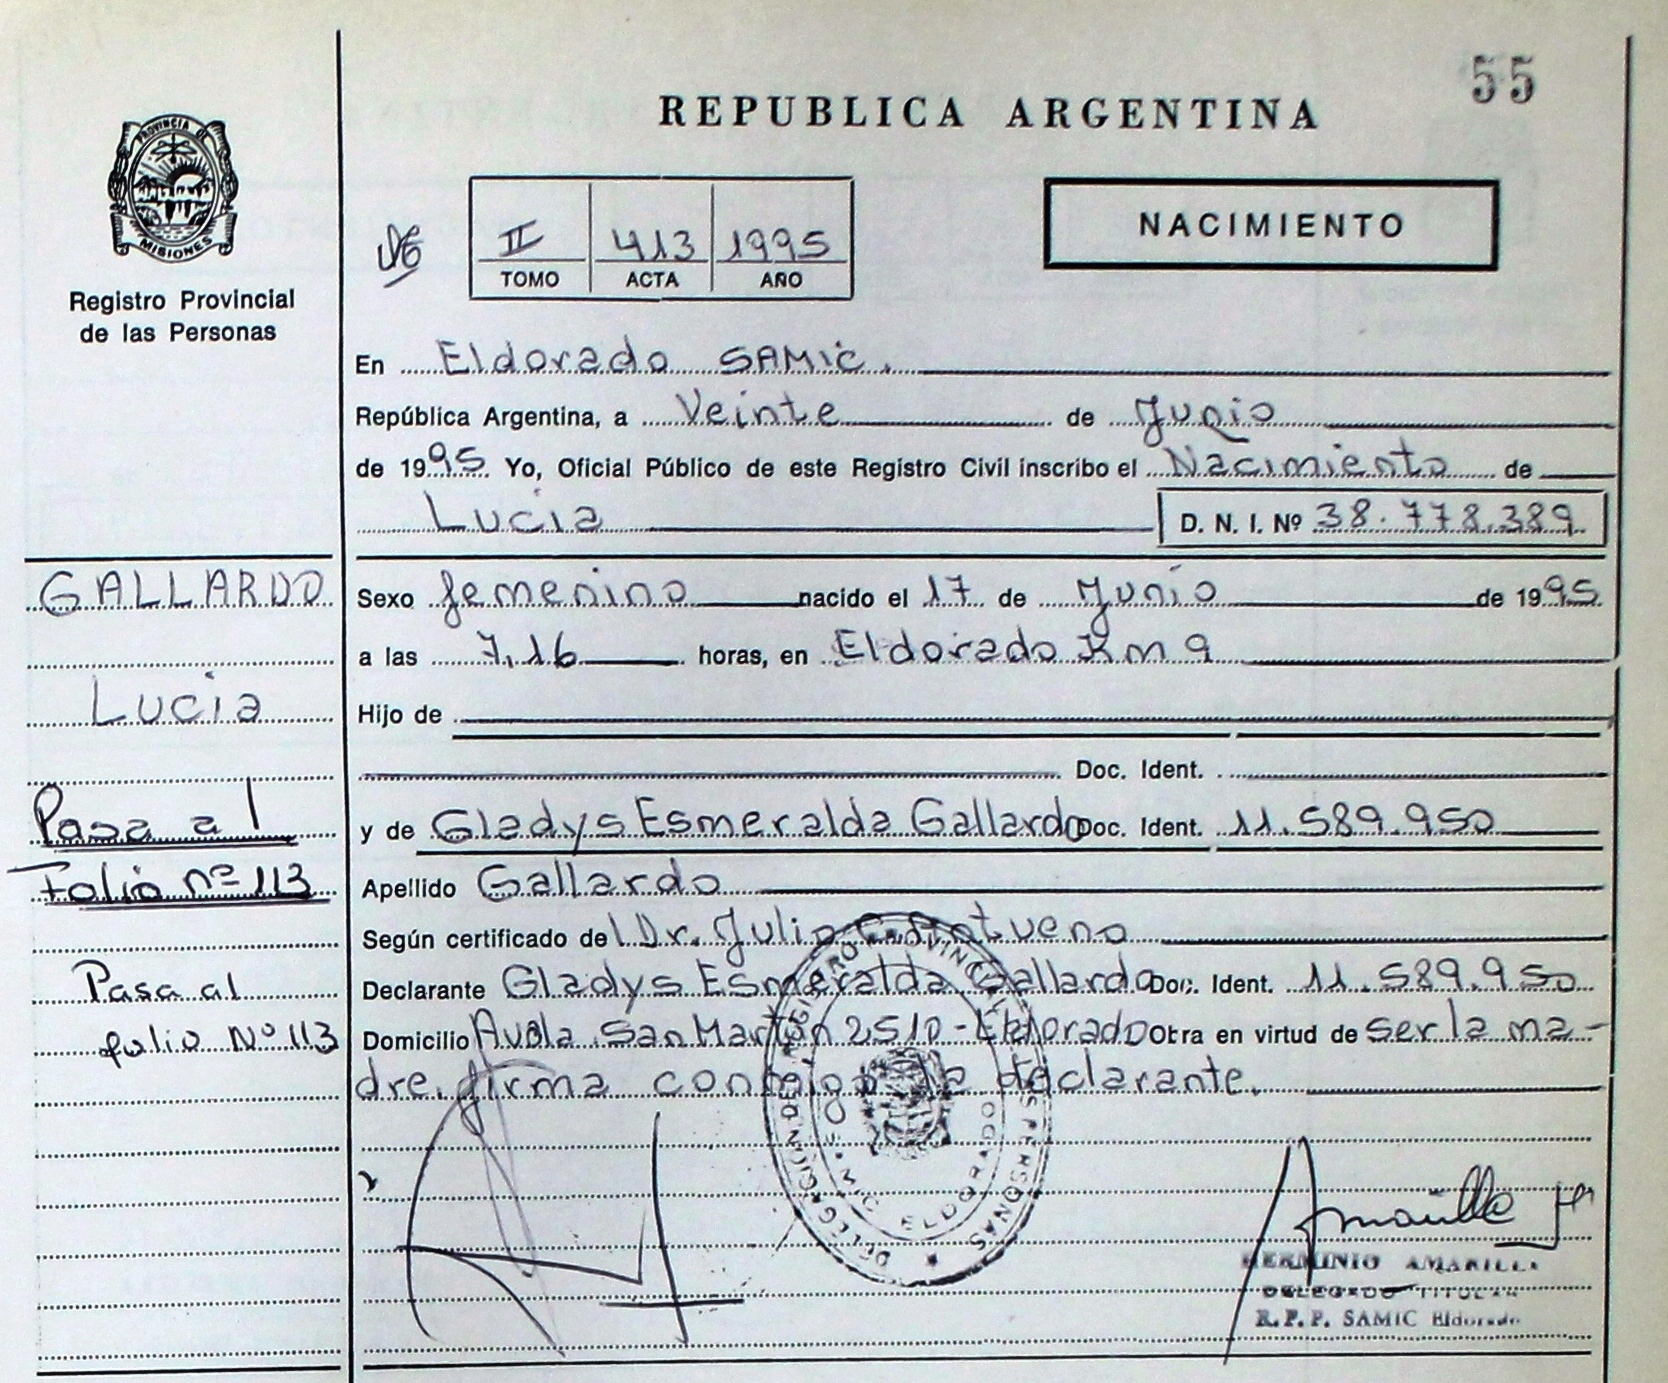 55
REPUBLICA ARGENTINA
PROVINCIA DE
MISIONES
Registro Provincial
de las Personas
II 413 1995
TOMO ACTA AÑO
NACIMIENTO
En Eldorado SAMIC.
República Argentina, a Veinte de Junio
de 1995 Yo, Oficial Público de este Registro Civil inscribo el Nacimiento de
Lucia D. N. I. Nº 38.778.389
GALLARDO
Lucia
Pasa al
Folio nº 113
Pasa al
folio Nº 113
Sexo femenino nacido el 17 de Junio de 1995
a las 7,16 horas, en Eldorado Km 9
Hijo de
Doc. Ident.
y de Gladys Esmeralda Gallardo Doc. Ident. 11.589.950
Apellido Gallardo
Según certificado del Dr. Julio
Declarante Gladys Esmeralda Gallardo Doc. Ident. 11.589.950
Domicilio Avda. San Martín 2510-Eldorado Obra en virtud de ser la ma-
dre. firma conmigo la declarante.
DELEGACION DEL REGISTRO PROVINCIAL DE LAS PERSONAS
SAMIC ELDORADO
Amarilla H
HERMINIO AMARILLA
DELEGADO TITULAR
R. P. P. SAMIC Eldorado